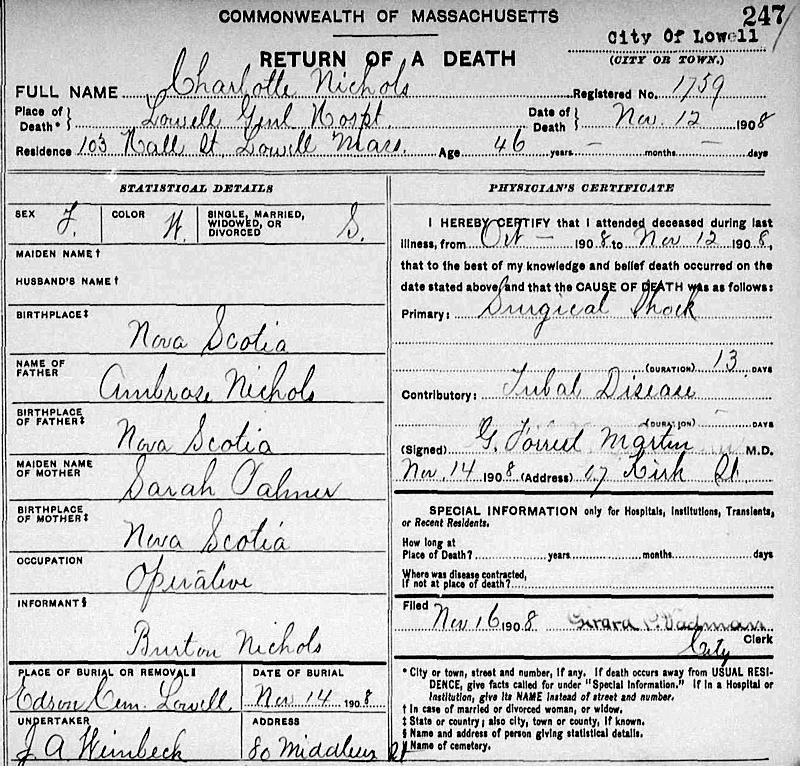 COMMONWEALTH OF MASSACHUSETTS
247
City Of Lowell
RETURN OF A DEATH
(CITY OR TOWN.)
FULL NAME Charlotte Nichols Registered No. 1759
Place of Death* } Lowell Genl Hospt. Date of Death } Nov. 12 1908
Residence 103 Hall St. Lowell Mass. Age 46 years — months — days
STATISTICAL DETAILS
SEX F. COLOR W. SINGLE, MARRIED, WIDOWED, OR DIVORCED S.
MAIDEN NAME †
HUSBAND'S NAME †
BIRTHPLACE ‡
Nova Scotia
NAME OF FATHER
Ambrose Nichols
BIRTHPLACE OF FATHER ‡
Nova Scotia
MAIDEN NAME OF MOTHER
Sarah Palmer
BIRTHPLACE OF MOTHER ‡
Nova Scotia
OCCUPATION
Operative
INFORMANT §
Burton Nichols
PLACE OF BURIAL OR REMOVAL ‖
Edson Cem. Lowell
DATE OF BURIAL
Nov 14 1908
UNDERTAKER
J. A. Weinbeck
ADDRESS
80 St
PHYSICIAN'S CERTIFICATE
I HEREBY CERTIFY that I attended deceased during last
illness, from Oct — 1908 to Nov 12 1908,
that to the best of my knowledge and belief death occurred on the
date stated above, and that the CAUSE OF DEATH was as follows:
Primary: Surgical Shock
(DURATION) 13 DAYS
Contributory: Tubal Disease
(DURATION) DAYS
(Signed) G. Forrest Martin M.D.
Nov. 14 1908 (Address) 17 Kirk St.
SPECIAL INFORMATION only for Hospitals, Institutions, Transients,
or Recent Residents.
How long at
Place of Death? years months days
Where was disease contracted,
If not at place of death?
Filed Nov 16 1908 Girard P. Dadman
City Clerk
* City or town, street and number, if any. If death occurs away from USUAL RESI-
DENCE, give facts called for under "Special Information." If in a Hospital or
Institution, give its NAME instead of street and number.
† In case of married or divorced woman, or widow.
‡ State or country; also city, town or county, if known.
§ Name and address of person giving statistical details.
‖ Name of cemetery.